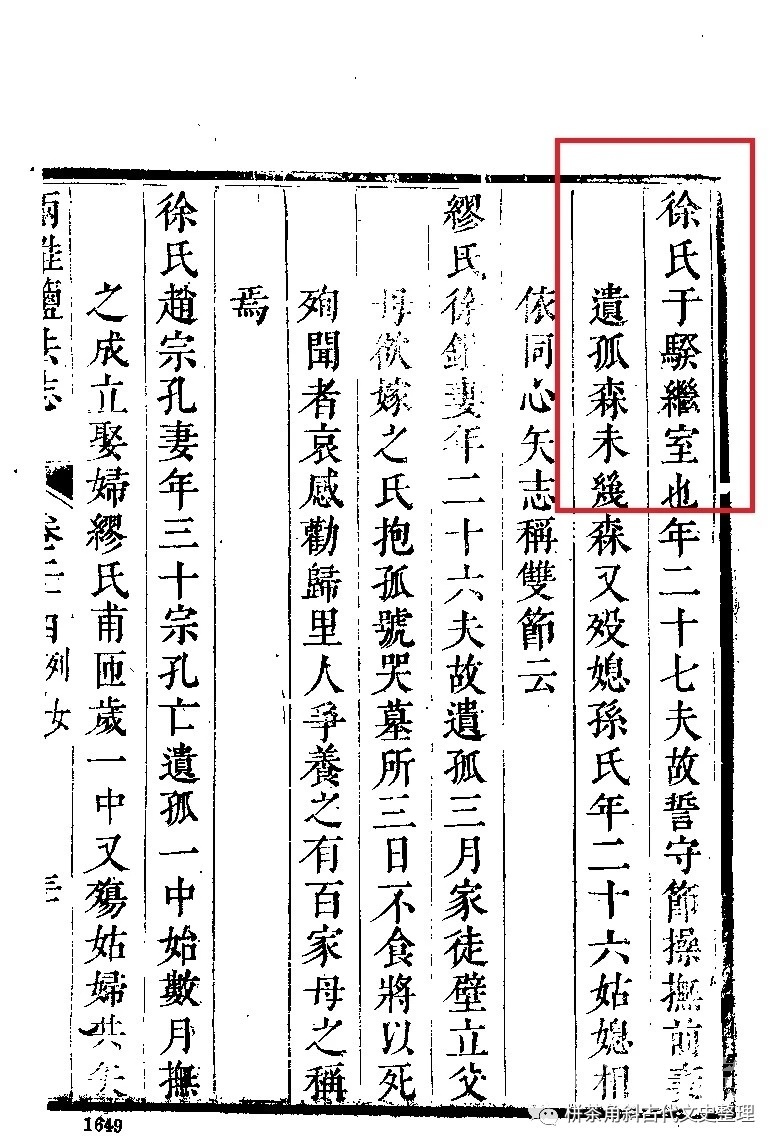 徐氏于騤繼室也年二十七夫故誓守節操撫前妻
遺孤森未幾森又殁媳孫氏年二十六姑媳相
依同心矢志稱雙節云
繆氏徐鑑妻年二十六夫故遺孤三月家徒壁立父
母欲嫁之氏抱孤號哭墓所三日不食將以死
殉聞者哀感勸歸里人爭養之有百家母之稱
焉
徐氏趙宗孔妻年三十宗孔亡遺孤一中始數月撫
之成立娶婦繆氏甫匝歲一中又殤姑婦共矢
兩淮鹽法志 卷二十四列女
1649
饼茶用斜古代文史整理